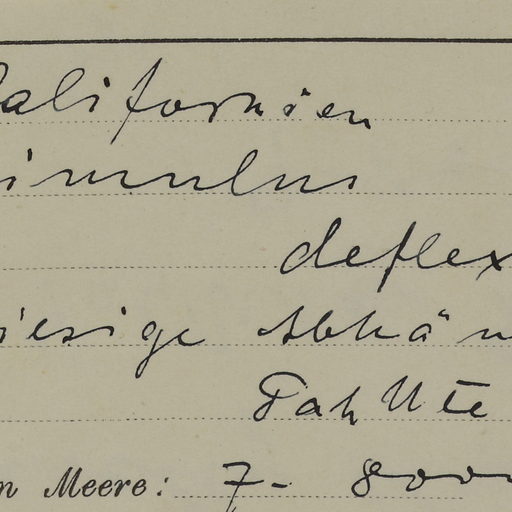 Californien
imulus
deflex
iesige Abhän
Pah Ute
n Meere: 7- 8000